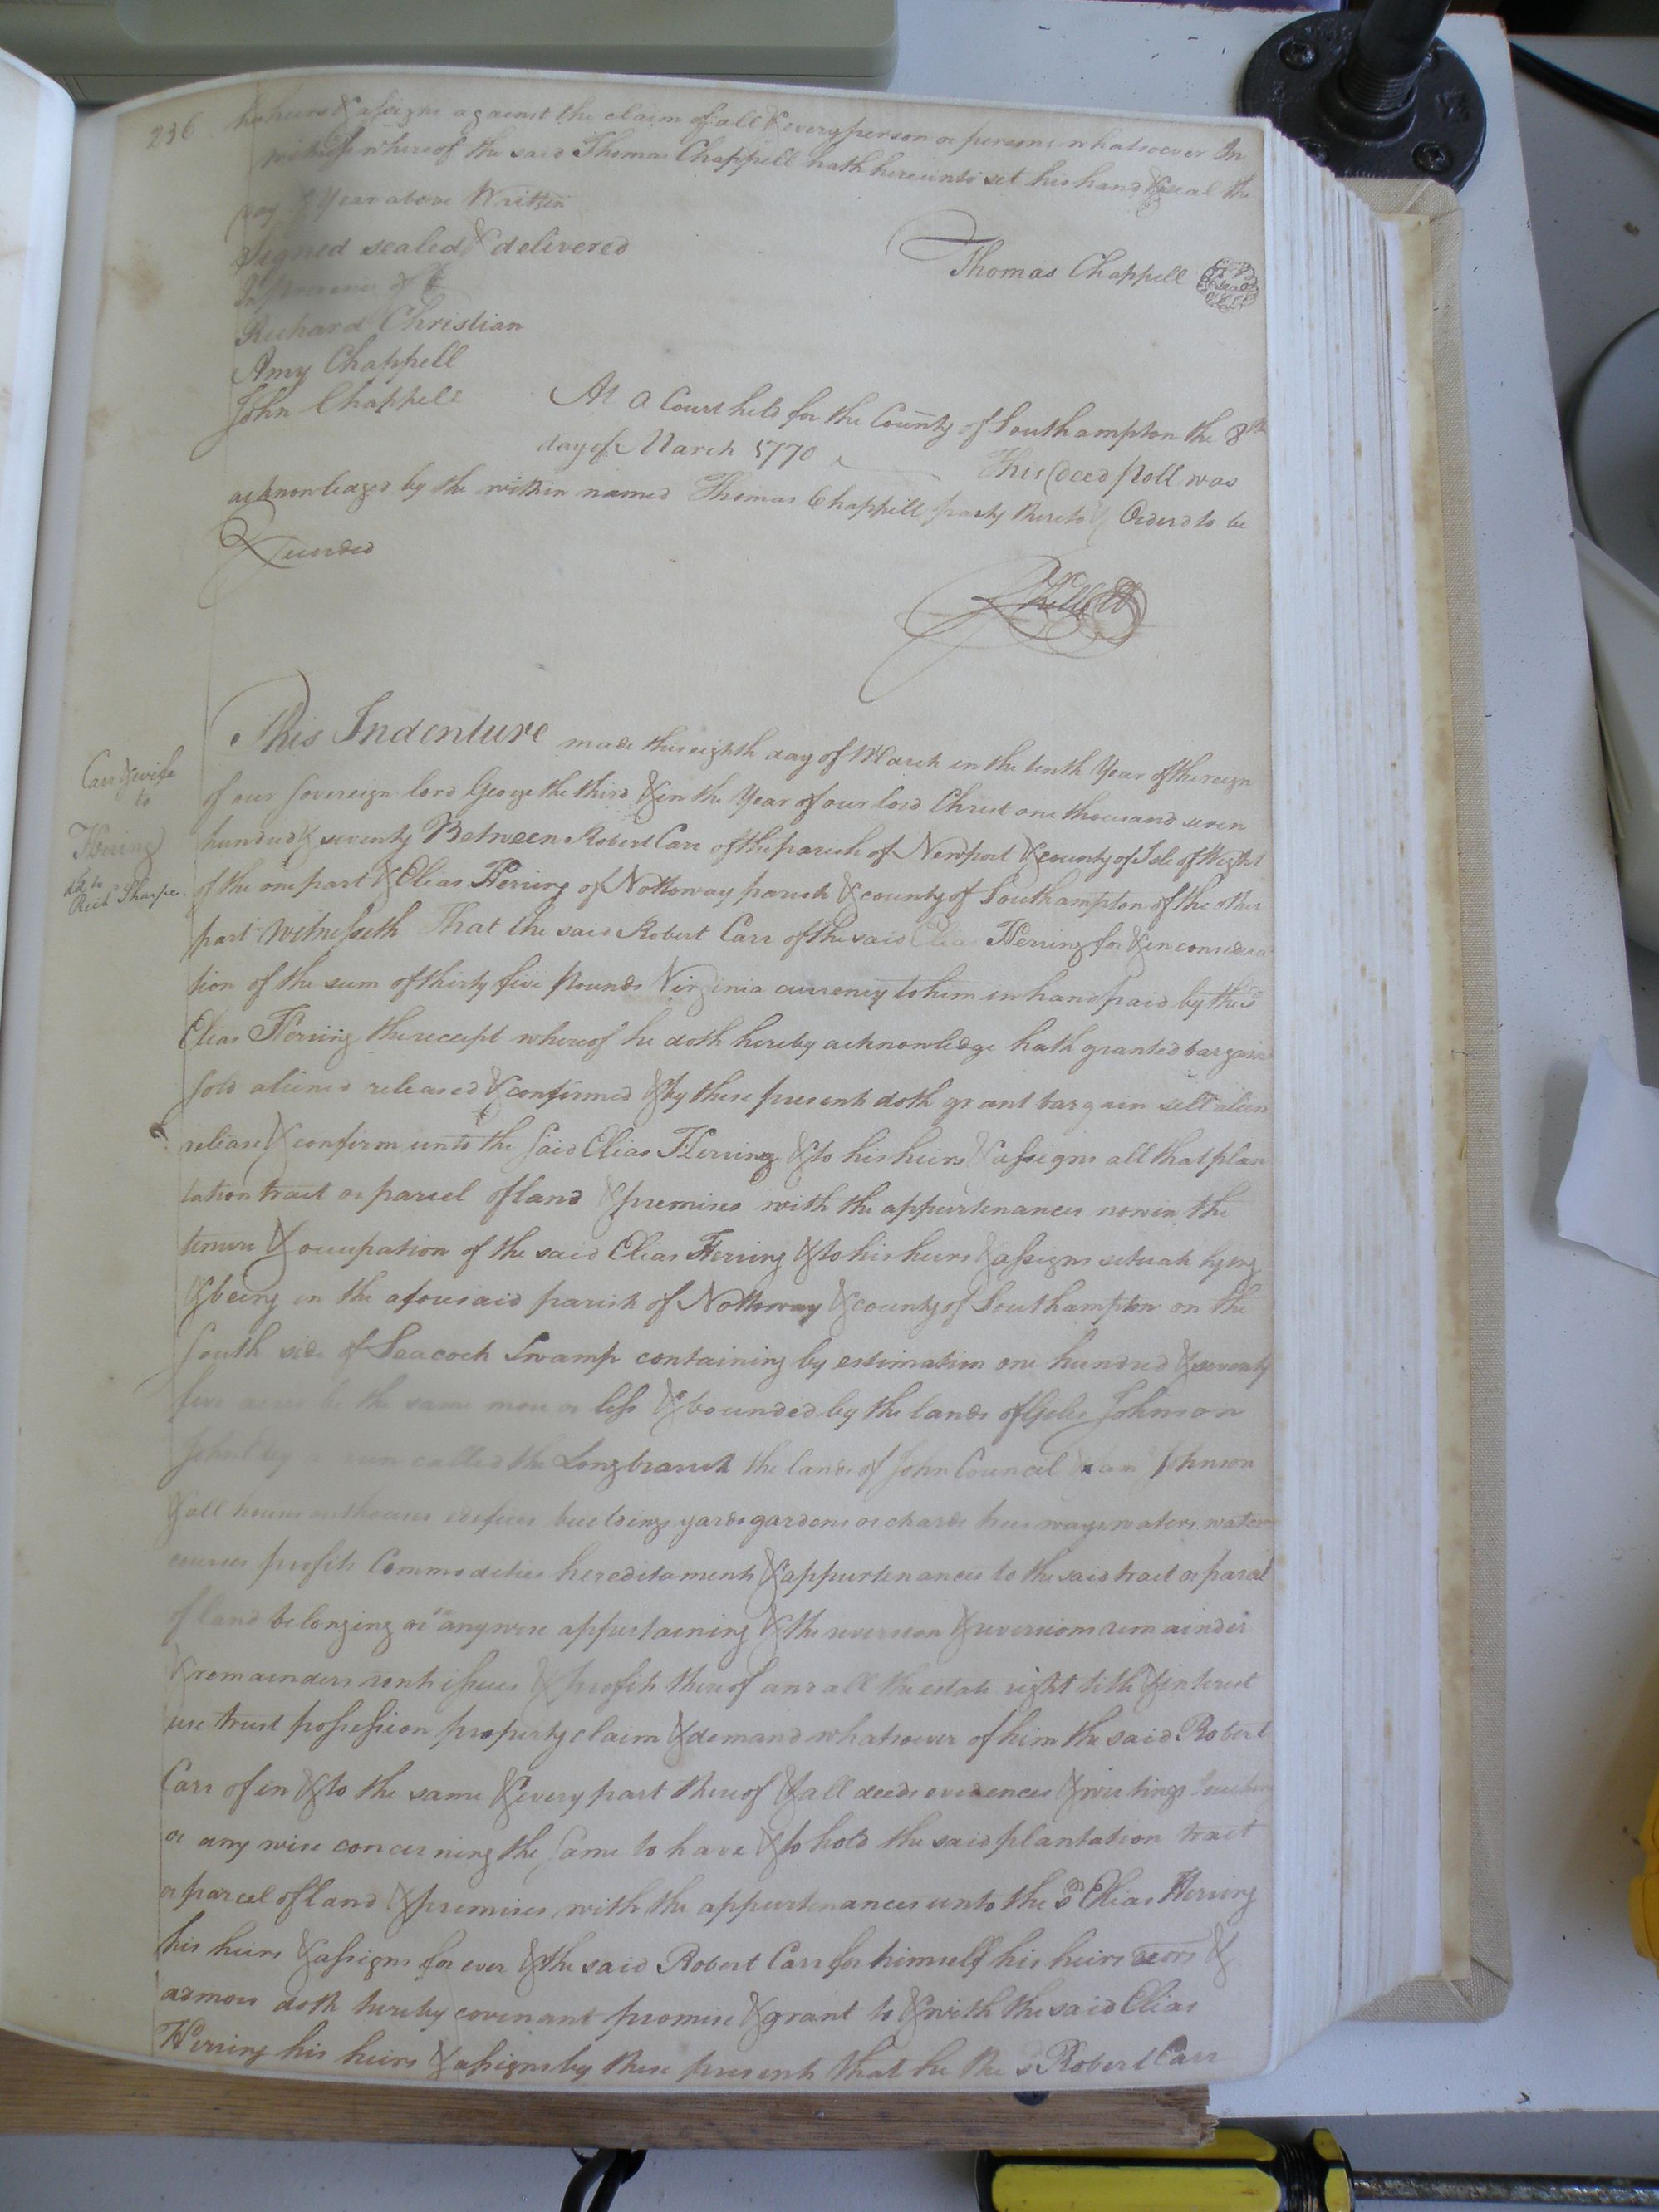 236
his heirs & assigns against the claim of all & every person or persons whatsoever In
witness whereof the said Thomas Chappell hath hereunto set his hand & seal the
day & Year above Written
Signed sealed & delivered
In presence of
Thomas Chappell
Seal
Richard Christian
Amy Chappell
John Chappell
At a Court held for the County of Southampton the 8th
day of March 1770
This deed Poll was
acknowledged by the within named Thomas Chappell party thereto & Orderd to be
Recorded
This Indenture made the eighth day of March in the tenth Year of the reign
Carr & wife
to
Herring
dd to
Rich Sharpe.
of our sovereign lord George the third & in the Year of our lord Christ one thousand seven
hundred & seventy Between Robert Carr of the parish of Newport & county of Isle of Wight
of the one part & Elias Herring of Nottoway parish & county of Southampton of the other
part Witnesseth That the said Robert Carr of the said Elias Herring for & in considera
tion of the sum of thirty five Pounds Virginia currency to him in hand paid by the sd
Elias Herring the receipt whereof he doth hereby acknowledge hath granted bargaind
sold aliened released & confirmed & by these presents doth grant bargain sell alien
release & confirm unto the said Elias Herring & to his heirs & assigns all that plan
tation tract or parcel of land & premises with the appurtenances now in the
tenure & occupation of the said Elias Herring & to his heirs & assigns situate lying
& being in the aforesaid parish of Nottoway & county of Southampton on the
South side of Seacock Swamp containing by estimation one hundred & seventy
five acres be the same more or less & bounded by the lands of Giles Johnson
John run called the Longbranch the lands of John Council Johnson
& all houses outhouses edifices buildings yards gardens orchards trees ways waters water
courses profits Commodities hereditaments & appurtenances to the said tract or parcel
of land belonging or in anywise appertaining & the reversion & reversions remainder
& remainders rents issues & profits thereof and all the estate right title & interest
use trust possession property claim & demand whatsoever of him the said Robert
Carr of in & to the same & every part thereof & all deeds evidences & writings touching
or any wise concerning the same to have & to hold the said plantation tract
or parcel of land & premises with the appurtenances unto the sd Elias Herring
his heirs & assigns for ever & the said Robert Carr for himself his heirs exors &
admors doth hereby covenant promise & grant to & with the said Elias
Herring his heirs & assigns by these presents that he the sd Robert Carr